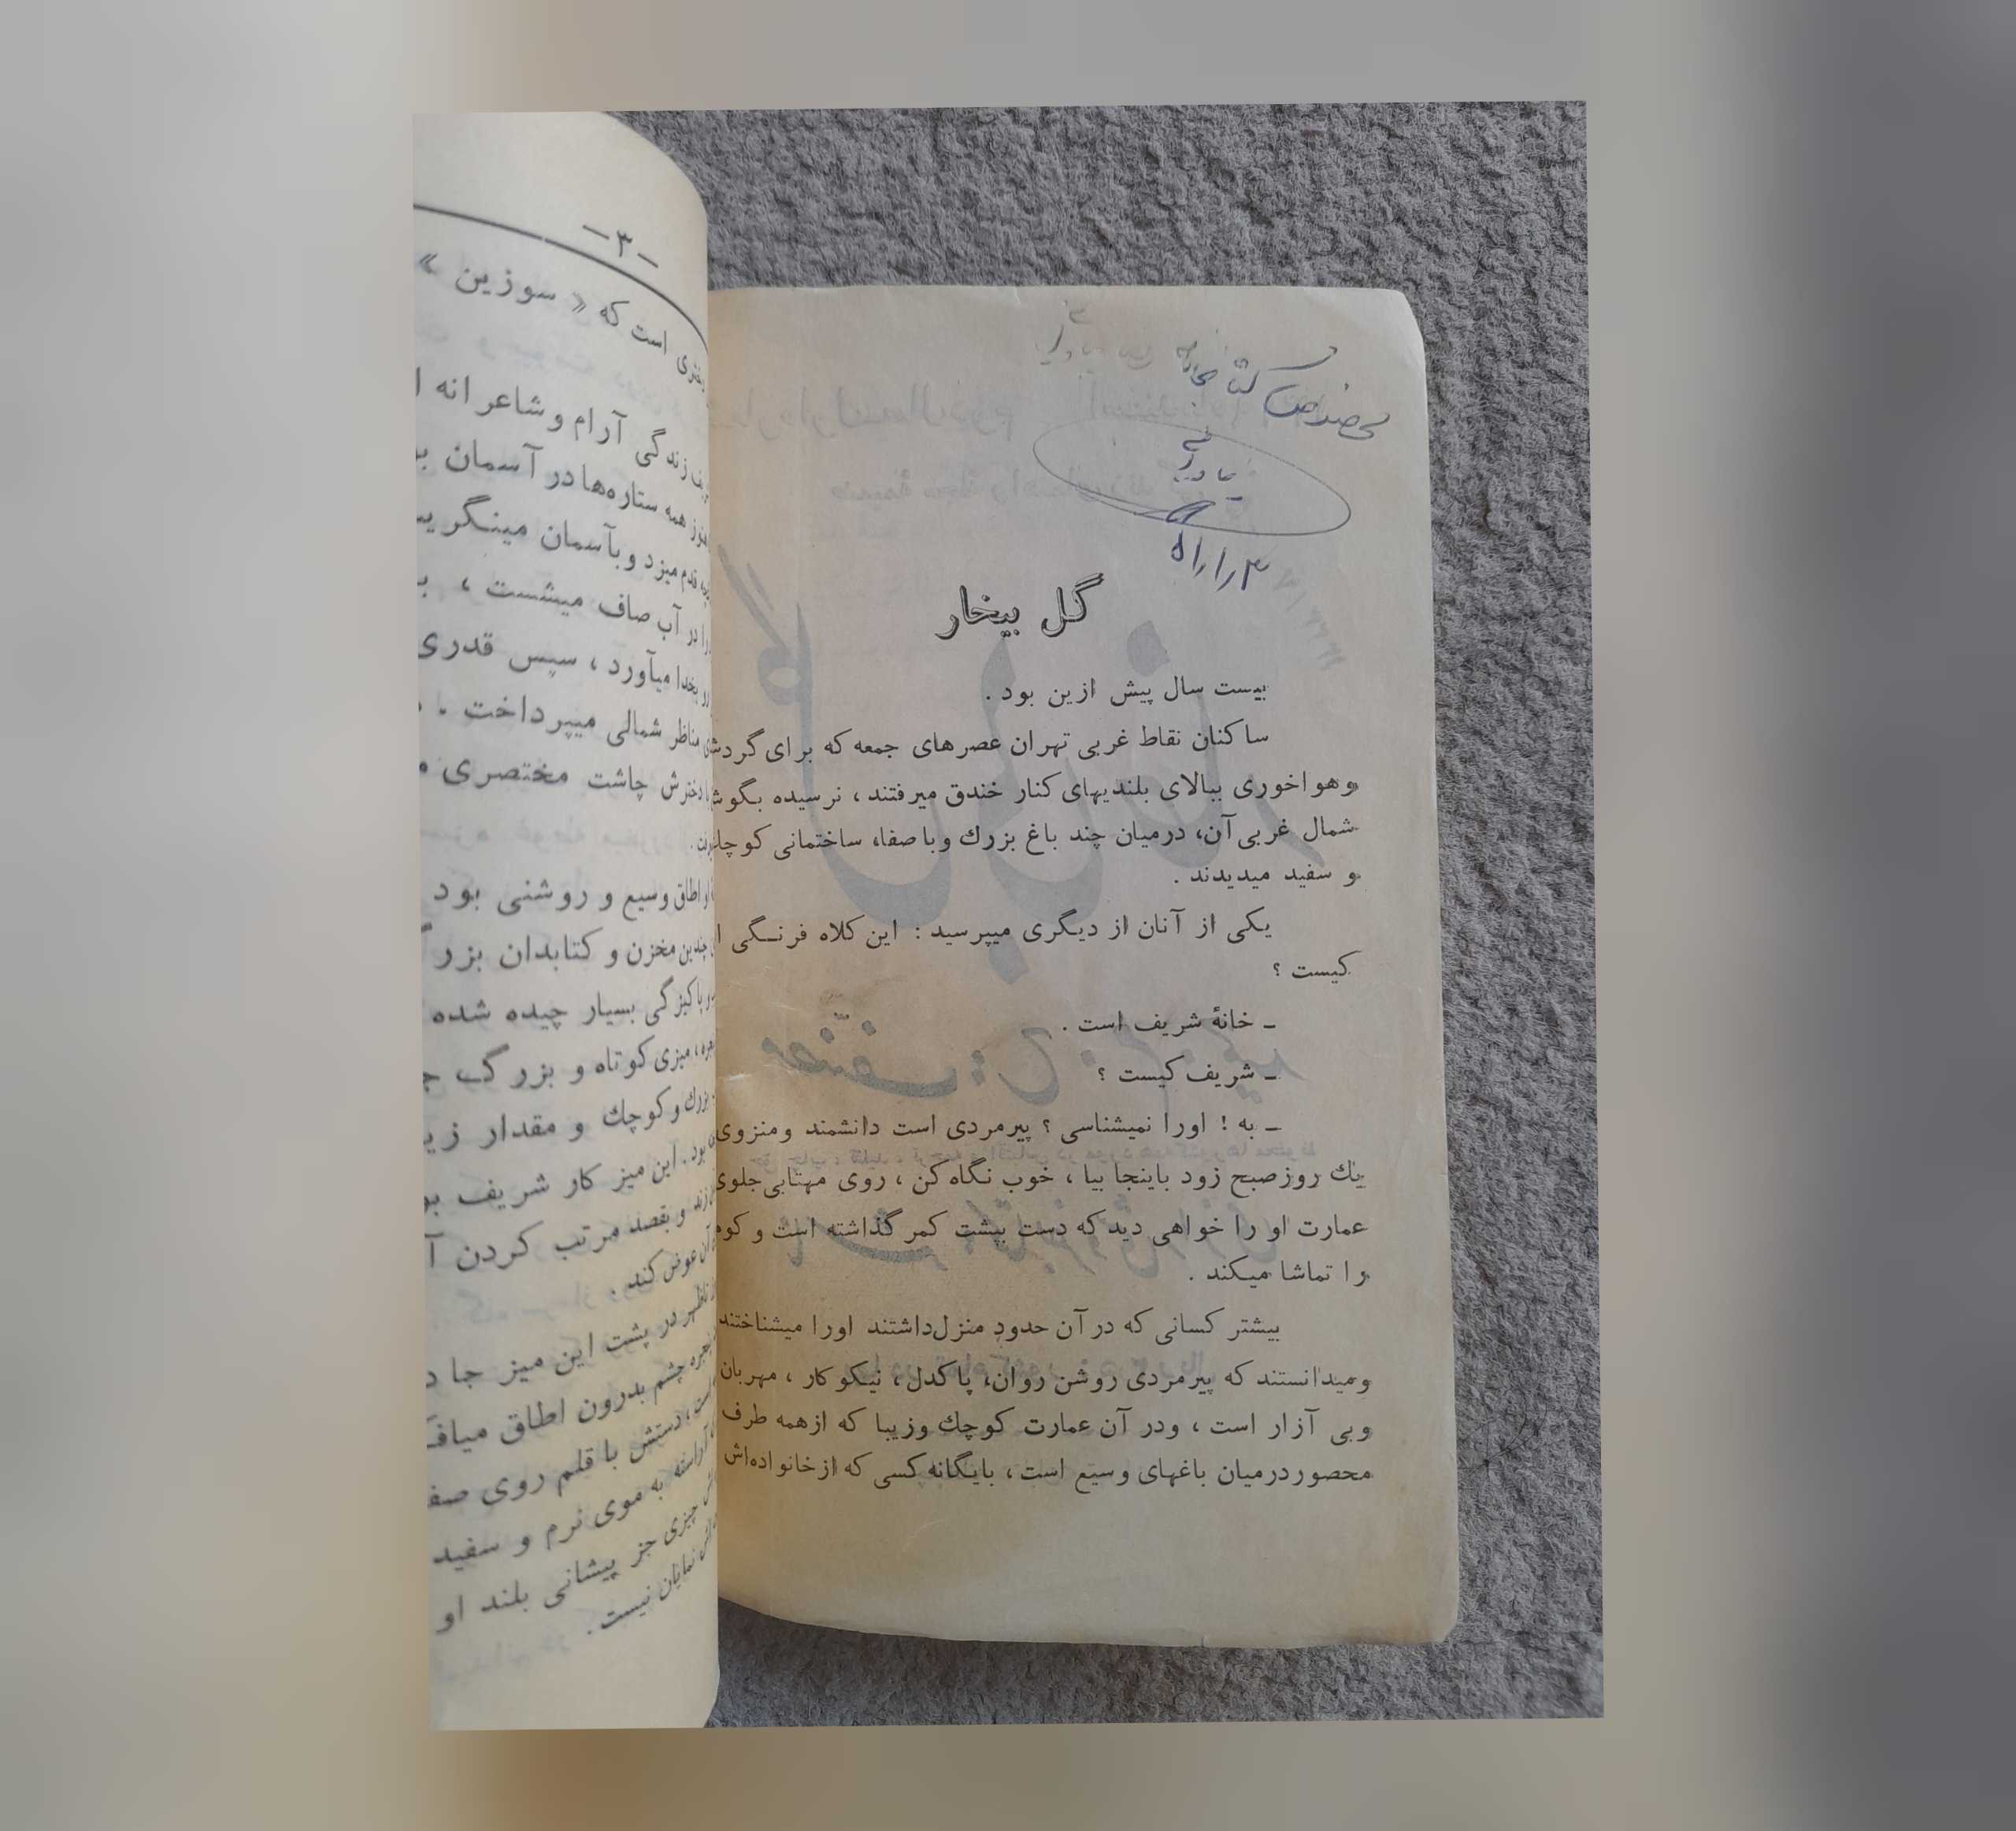 مخصوص کتابخانه
۵۱/۱/۳
گل بیخار
بیست سال پیش ازین بود .
ساکنان نقاط غربی تهران عصرهای جمعه که برای گردش
وهواخوری ببالای بلندیهای کنار خندق میرفتند ، نرسیده بگوشه
شمال غربی آن، درمیان چند باغ بزرك وباصفا، ساختمانی کوچك
و سفید میدیدند .
یکی از آنان از دیگری میپرسید : این کلاه فرنگی
کیست ؟
ـ خانهٔ شریف است .
ـ شریف کیست ؟
ـ به ! اورا نمیشناسی ؟ پیرمردی است دانشمند ومنزوی
یك روزصبح زود باینجا بیا ، خوب نگاه کن ، روی مهتابی جلوی
عمارت او را خواهی دید که دست بپشت کمر گذاشته است و کوه
را تماشا میکند .
بیشتر کسانی که در آن حدود منزل داشتند اورا میشناختند
ومیدانستند که پیرمردی روشن روان، پاکدل ، نیکوکار ، مهربان
وبی آزار است ، ودر آن عمارت کوچك وزیبا که ازهمه طرف
محصور درمیان باغهای وسیع است ، بایگانه کسی که ازخانواده‌اش
ـ۳ـ
است که « سوزین »
زندگی آرام و شاعرانه
همه ستاره‌ها در آسمان
قدم میزد وبآسمان
در آب صاف میشست ،
بخدا میآورد ، سپس قدری
مناظر شمالی میپرداخت .
دخترش چاشت مختصری
اطاق وسیع و روشنی بود
چندین مخزن و کتابدان
پاکیزگی بسیار چیده شده
میزی کوتاه و بزرگ
بزرك وکوچك و مقدار
بود . این میز کار شریف
و بقصد مرتب کردن
آن عوض کند .
در پشت این میز جا
چشم بدرون اطاق
دستش با قلم روی
آراسته به موی نرم و سفید
چیزی جز پیشانی بلند او
نمایان نیست .